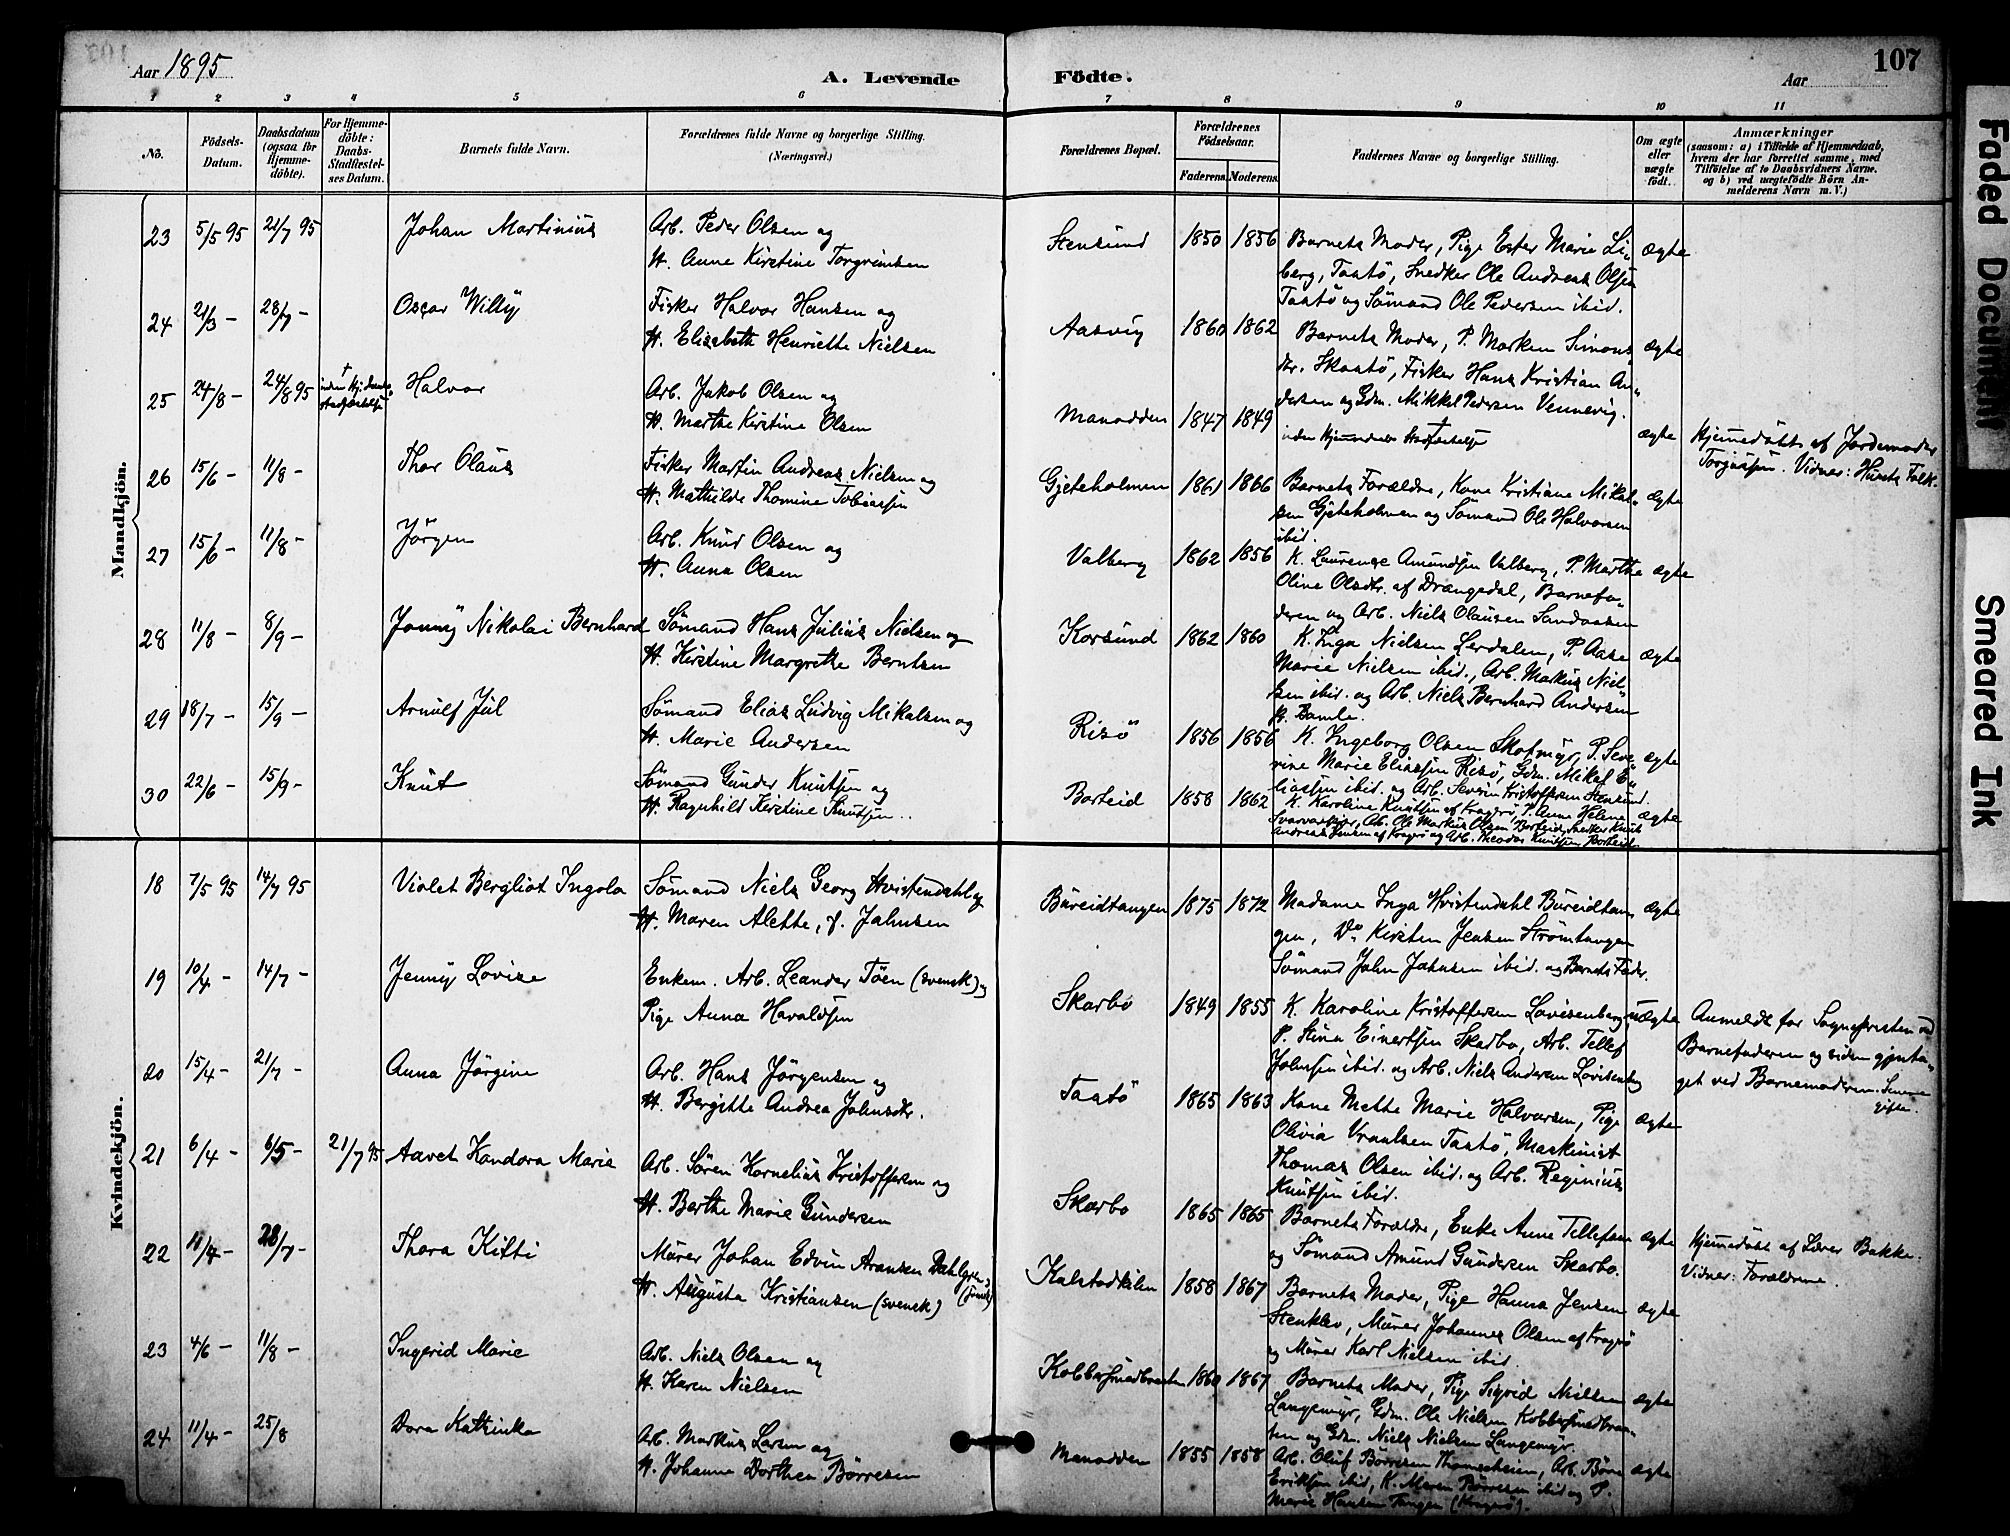 Aar 1895
A. Levende
Födte.
107
Aar
1 2 3 4 5 6 7 8 9 10 11
No.
Födsels-
Datum.
Daabsdatum
(ogsaa for
Hjemme-
döbte).
For Hjemme-
döbte:
Daabs-
Stadfæstel-
ses Datum.
Barnets fulde Navn.
Forældrenes fulde Navne og borgerlige Stilling.
(Næringsvei.)
Forældrenes Bopæl.
Forældrenes
Födselsaar.
Faderens. Moderens.
Faddernes Navne og borgerlige Stilling.
Om ægte
eller
uægte
födt.
Anmærkninger
(saasom: a) i Tilfælde af Hjemmedaab,
hvem der har forrettet samme, med
Tilföielse af to Daabsvidners Navne.
og b) ved uægtefödte Börn An-
melderens Navn m. V.)
Mandkjön.
23 5/5 95 21/7 95 Johan Martinius
Arb. Peder Olsen og
H. Anne Kirstine Torgrimsen
Stensund 1850 1856
Barnets Moder, Pige Ester Marie Li„
berg, Taatö, Snedker Ole Andreas Olsen
Taatö og Sömand Ole Pedersen ibid.
ægte
24 21/3 – 28/7 – Oscar Willy
Fisker Halvor Hansen og
H. Elisabeth Henriette Nielsen
Aasvig 1860 1862
Barnets Moder, P. Marken Simons„
dtr. Skaatö, Fisker Hans Kristian An„
dersen og Gdm. Mikkel Pedersen Vennevig.
ægte
25 24/8 – 24/8 95
Halvor
Arb. Jakob Olsen og
H. Marthe Kirstine Olsen
Manodden 1847 1849
ægte
Hjemmedöbt af Jordemoder
Torgersen. Vidner: Husets Folk.
26 15/6 – 11/8 – Thor Olaus
Fisker Martin Andreas Nielsen og
H. Mathilde Thomine Tobiassen
Gjeteholmen 1861 1866
Barnets Forældre, Kone Kristiane Mikal„
sen Gjeteholmen og Sömand Ole Halvorsen
ibid.
ægte
27 15/6 – 11/8 – Jörgen
Arb. Knud Olsen og
H. Anna Olsen
Valberg 1862 1856
K. Laurense Amundsen Valberg, P. Marthe
Oline Olsdtr. af Drangedal, Barnefa„
deren og Arb. Niels Olausen Sandaasen
ægte
28 11/8 – 8/9 – Jonny Nikolai Bernhard
Sömand Hans Julius Nielsen og
H. Kirstine Margrethe Berntsen
Korsund 1862 1860
K. Inga Nielsen Lerdalen, P. Aase
Marie Nielsen ibid., Arb. Markus Niel„
sen ibid. og Arb. Niels Bernhard Andersen
fr. Bamle.
ægte
29 18/7 – 15/9 – Arnulf Jul
Sömand Elias Ludvig Mikalsen og
H. Marie Andersen
Risö 1856 1856
K. Ingeborg Olsen Skofmyr, P. Seve„
rine Marie Eliassen Risö, Gdm. Mikal E„
liassen ibid. og Arb. Severin Kristoffersen Stensund.
ægte
30 22/6 – 15/9 – Knut
Sömand Gunder Knutsen og
H. Ragnhild Kirstine Knutsen.
Borteid 1858 1862
K. Karoline Knutsen af Kragerö, P. Anne Helene
Arb. Ole Markus Olsen Borteid, Snedker Knut
Andreas Jensen af Kragerö og Arb. Theodor Knutsen Borteid
ægte
Kvindekjön.
18 7/5 95 14/7 95 Violet Bergliot Ingola
Sömand Niels Georg Hvistendahl og
H. Maren Alette, f. Jahnsen
Büreidtangen 1875 1872
Madame Inga Hvistendahl Büreidtan„
gen, Do Kirsten Jensen Strömtangen
Sömand John Jahnsen ibid. og Barnets Fader.
ægte
19 10/4 – 14/7 – Jenny Lovise
Enkem. Arb. Leander Töen (svensk) og
Pige Anna Haraldsen
Skarbo 1849 1855
K. Karoline Kristoffersen Lovisenberg
P. Stina Einertsen Skarbo, Arb. Tellef
Johnsen ibid. og Arb. Niels Andersen Lovisenberg
uægte
Anmeldt for Sognepresten ved
Barnefaderen og siden gjenta„
get ved Barnemoderen. Senere
gifte.
20 15/4 – 21/7 – Anna Jörgine
Arb. Hans Jörgensen og
H. Bergitte Andrea Johnsdtr.
Taatö 1865 1863
Kone Mette Marie Halvorsen, Pige
Olivia Vraalsen Taatö, Maskinist
Thomas Olsen ibid. og Arb. Reginius
Knutsen ibid.
ægte
21 6/4 – 6/5 – 21/7 95 Aavet Kandora Marie
Arb. Sören Kornelius Kristoffersen og
H. Berthe Marie Gundersen
Skarbo 1865 1865
Barnets Forældre, Enke Anne Tellefsen
og Sömand Amund Gundersen Skarbo.
ægte
Hjemmedöbt af Lærer Bakke.
Vidner: Forældrene.
22 11/4 – 28/7 – Thora Kitti
Mürer Johan Edvin Aronsen Dahlgren
H. Augusta Kristiansen (svensk)
Kalstadkilen 1858 1867
Barnets Moder, Pige Hanna Jensen
Stenklev, Mürer Johannes Olsen af Kragerö
og Mürer Karl Nielsen ibid.
ægte
23 4/6 – 11/8 – Ingerid Marie
Arb. Niels Olsen og
H. Karen Nielsen
Kobbersmedbraaten 1860 1867
Barnets Moder, Pige Sigrid Nielsen
Langemyr, Gdm. Ole Nielsen Kobbersmedbraa„
ten og Gdm. Niels Nielsen Langemyr
ægte
24 11/4 – 25/8 Dora Kathinka
Arb. Markus Larsen og
H. Johanne Dorthea Börresen
Manodden 1855 1858
Arb. Oluf Börresen Thomesheien, Arb. Böre
Eriksen ibid, K. Maren Börresen ibid og P.
Marie Hansen Tangen (Kragerö).
ægte
Faded Document
Smeared Ink